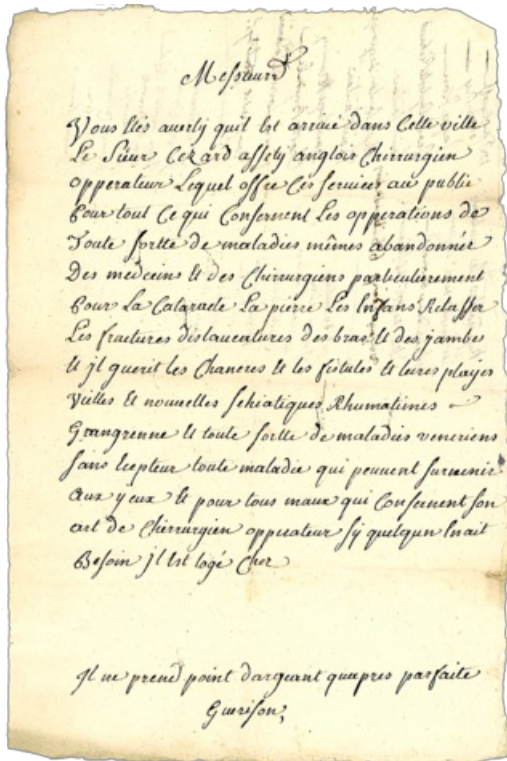 Messieurs
Vous Etés averty quil Est arrivé dans Cette ville
Le Sieur Cezard assety anglois Chirrurgien
opperateur Lequel offre Ces services au public
Pour tout Ce qui Consernent Les opperations de
Toute sortte de maladies mêmes abandonnér
Des medecins Et des Chirrurgiens particulierement
Pour La Cataracte La pierre Les Enfans Relasser
Les fractures dislaucatures des bras Et des jambes
Et jl guerit les Chancres Et les fistules Et leurs playes
Vielles Et nouvelles schiatiques Rhumatimes
Grangrenne Et toute sortte de maladies veneriens
sans Exepteur toute maladie qui peuvent survenir
aux yeux Et pour tous maux qui Consernent son
art de Chirrurgien opperateur sy quelqun Enait
Besoin jl Est logé Chez
Il ne prend point dargeant quapres parfaite
Guerison,